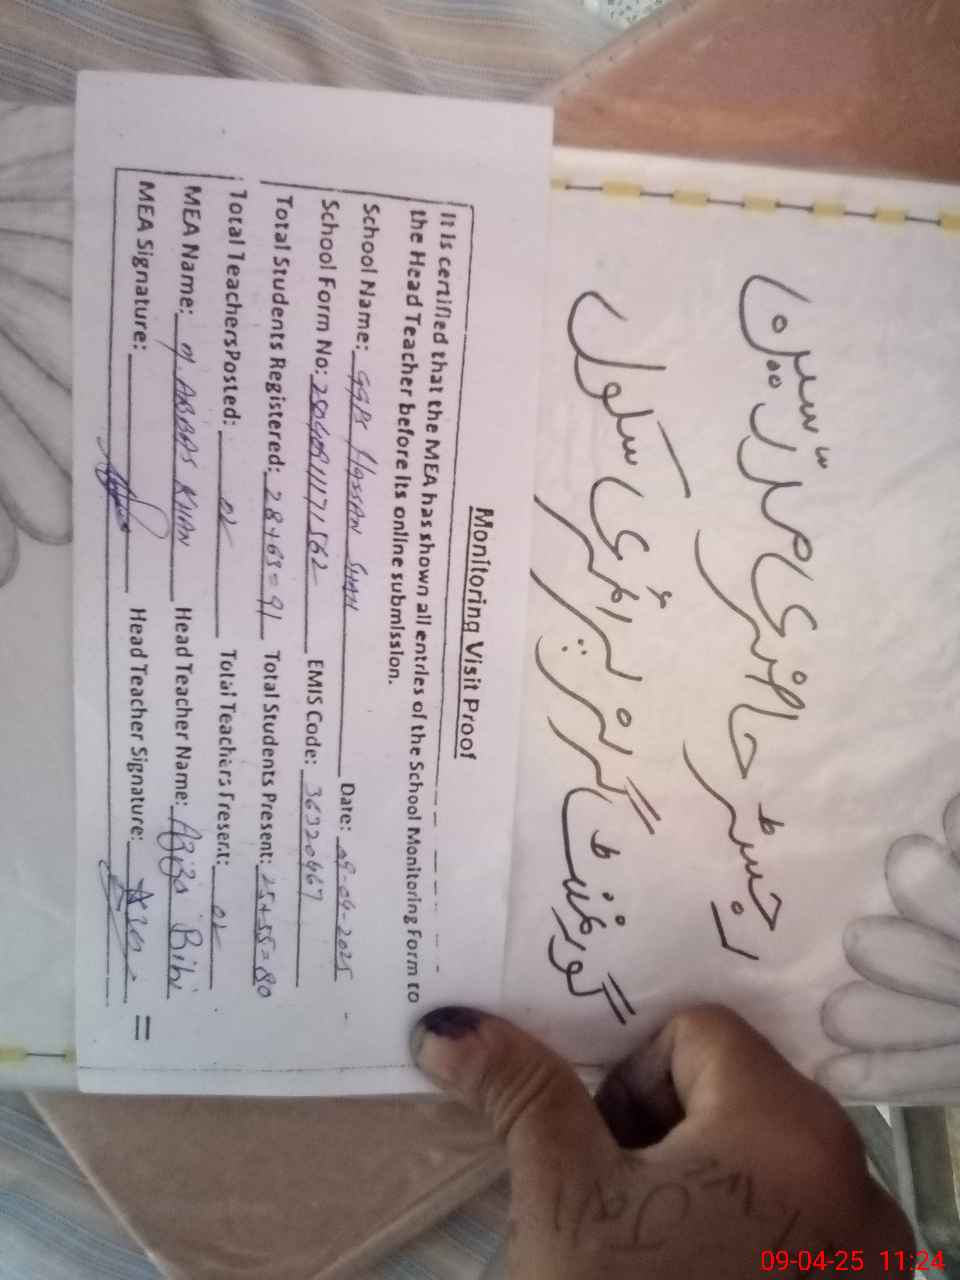 رجسٹر حاضری مدرّسین
گورنمنٹ گرلز پرائمری سکول
Monitoring Visit Proof
It is certified that the MEA has shown all entries of the School Monitoring Form to
the Head Teacher before its online submission.
School Name: GGPS HASSAN SHAH Date: 09-04-2025
School Form No: EMIS Code: 36320467
Total Students Registered: 28+63=91 Total Students Present: 25+55=80
Total Teachers Posted: 02 Total Teachers Present: 02
MEA Name: M. ABBAS KHAN Head Teacher Name: Bibi
MEA Signature: Head Teacher Signature:
09-04-25 11:24